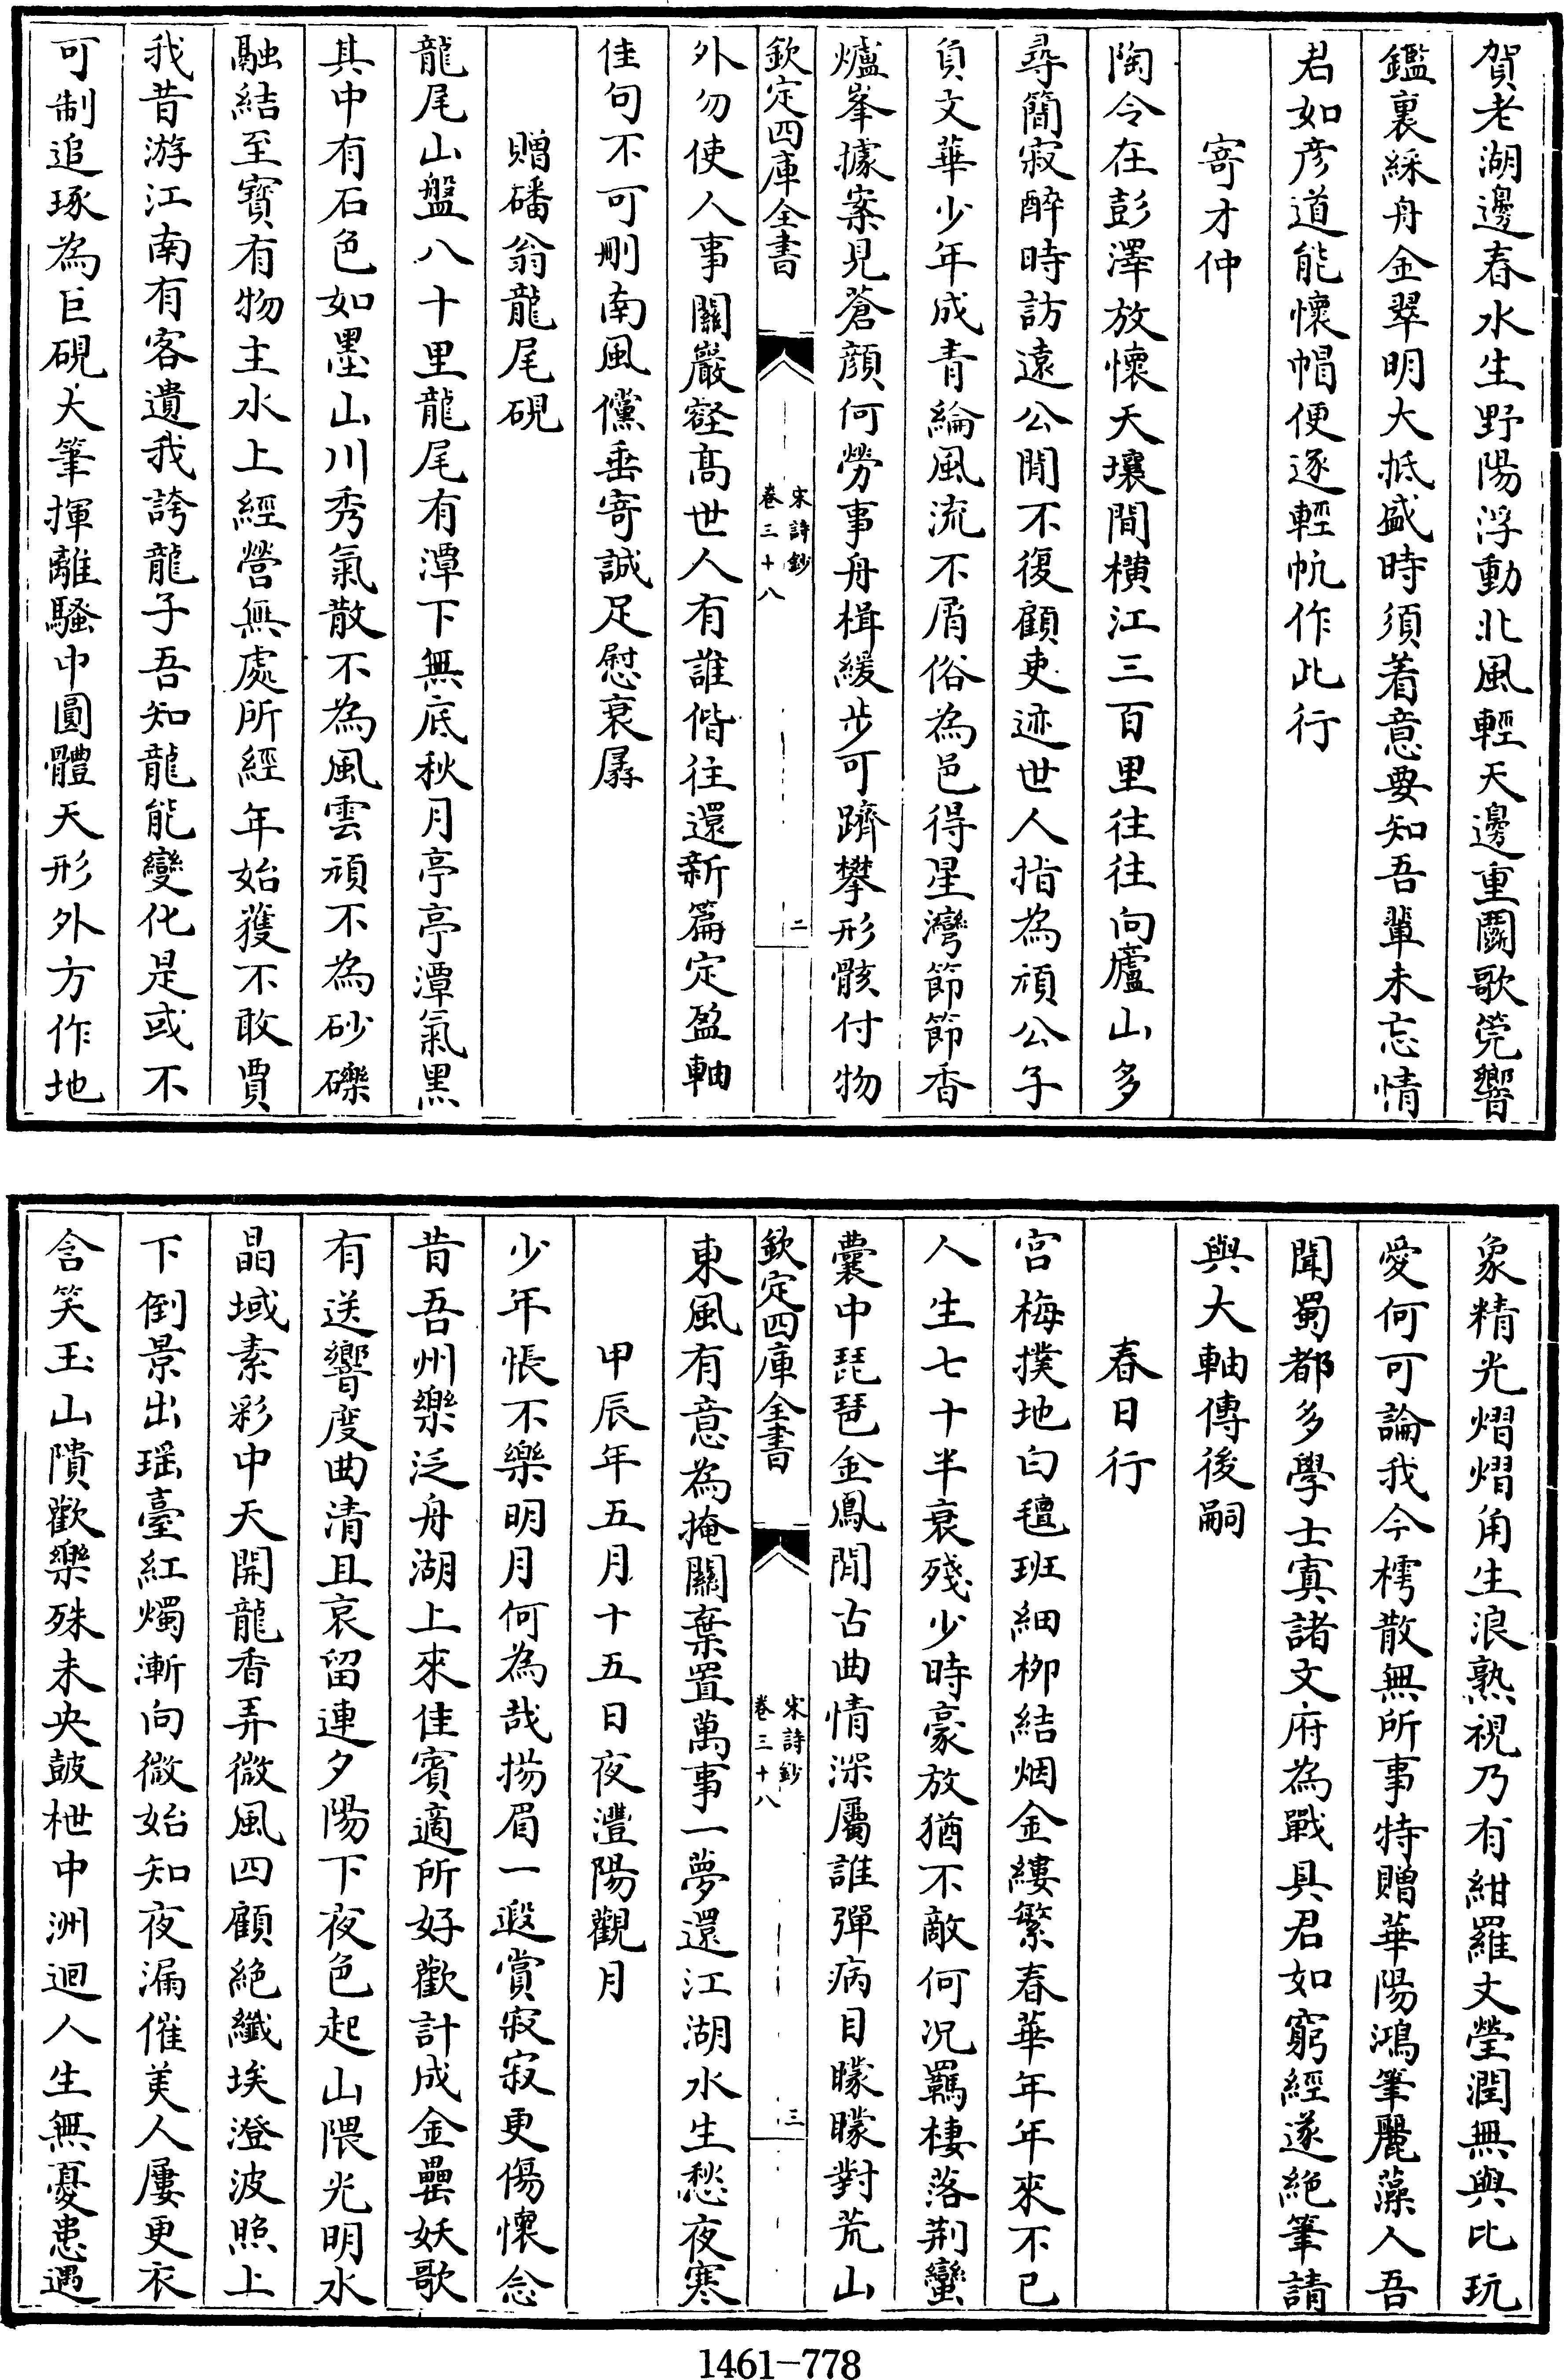 賀老湖邊春水生野陽浮動北風輕天邊重鬬歌筦響
鑑裏綵舟金翠明大抵盛時須着意要知吾輩未忘情
君如彦道能懷帽便逐輕帆作此行
寄才仲
陶令在彭澤放懷天壤間橫江三百里往往向廬山多
尋簡寂醉時訪遠公閒不復顧吏迹世人指為頑公子
負文華少年成青綸風流不屑俗為邑得星灣節節香
爐峯據案見蒼顔何勞事舟楫緩步可躋攀形骸付物
欽定四庫全書
宋詩鈔
卷三十八
二
外勿使人事關巖壑髙世人有誰偕往還新篇定盈軸
佳句不可刪南風儻垂寄誠足慰衰孱
贈磻翁龍尾硯
龍尾山盤八十里龍尾有潭下無底秋月亭亭潭氣黑
其中有石色如墨山川秀氣散不為風雲頑不為砂礫
融結至寶有物主水上經營無處所經年始獲不敢賈
我昔游江南有客遺我誇龍子吾知龍能變化是或不
可制追琢為巨硯大筆揮離騷中圓體天形外方作地
象精光熠熠角生浪熟視乃有紺羅文瑩潤無與比玩
愛何可論我今樗散無所事特贈華陽鴻筆麗藻人吾
聞蜀都多學士寘諸文府為戰具君如窮經遂絶筆請
與大軸傳後嗣
春日行
宮梅撲地白氊班細栁結烟金縷繁春華年年來不已
人生七十半衰殘少時豪放猶不敵何况羈棲落荆蠻
囊中琵琶金鳳閒古曲情深屬誰彈病目矇矇對荒山
欽定四庫全書
宋詩鈔
卷三十八
三
東風有意為掩關棄置萬事一夢還江湖水生愁夜寒
甲辰年五月十五日夜灃陽觀月
少年悵不樂明月何為哉揚眉一遐賞寂寂更傷懷念
昔吾州樂泛舟湖上來佳賓適所好歡計成金罍妖歌
有送響度曲清且哀留連夕陽下夜色起山隈光明水
晶域素彩中天開龍香弄微風四顧絶纖埃澄波照上
下倒景出瑶臺紅燭漸向微始知夜漏催美人屢更衣
含笑玉山隤歡樂殊未央鼓枻中洲迴人生無憂患遇
1461-778